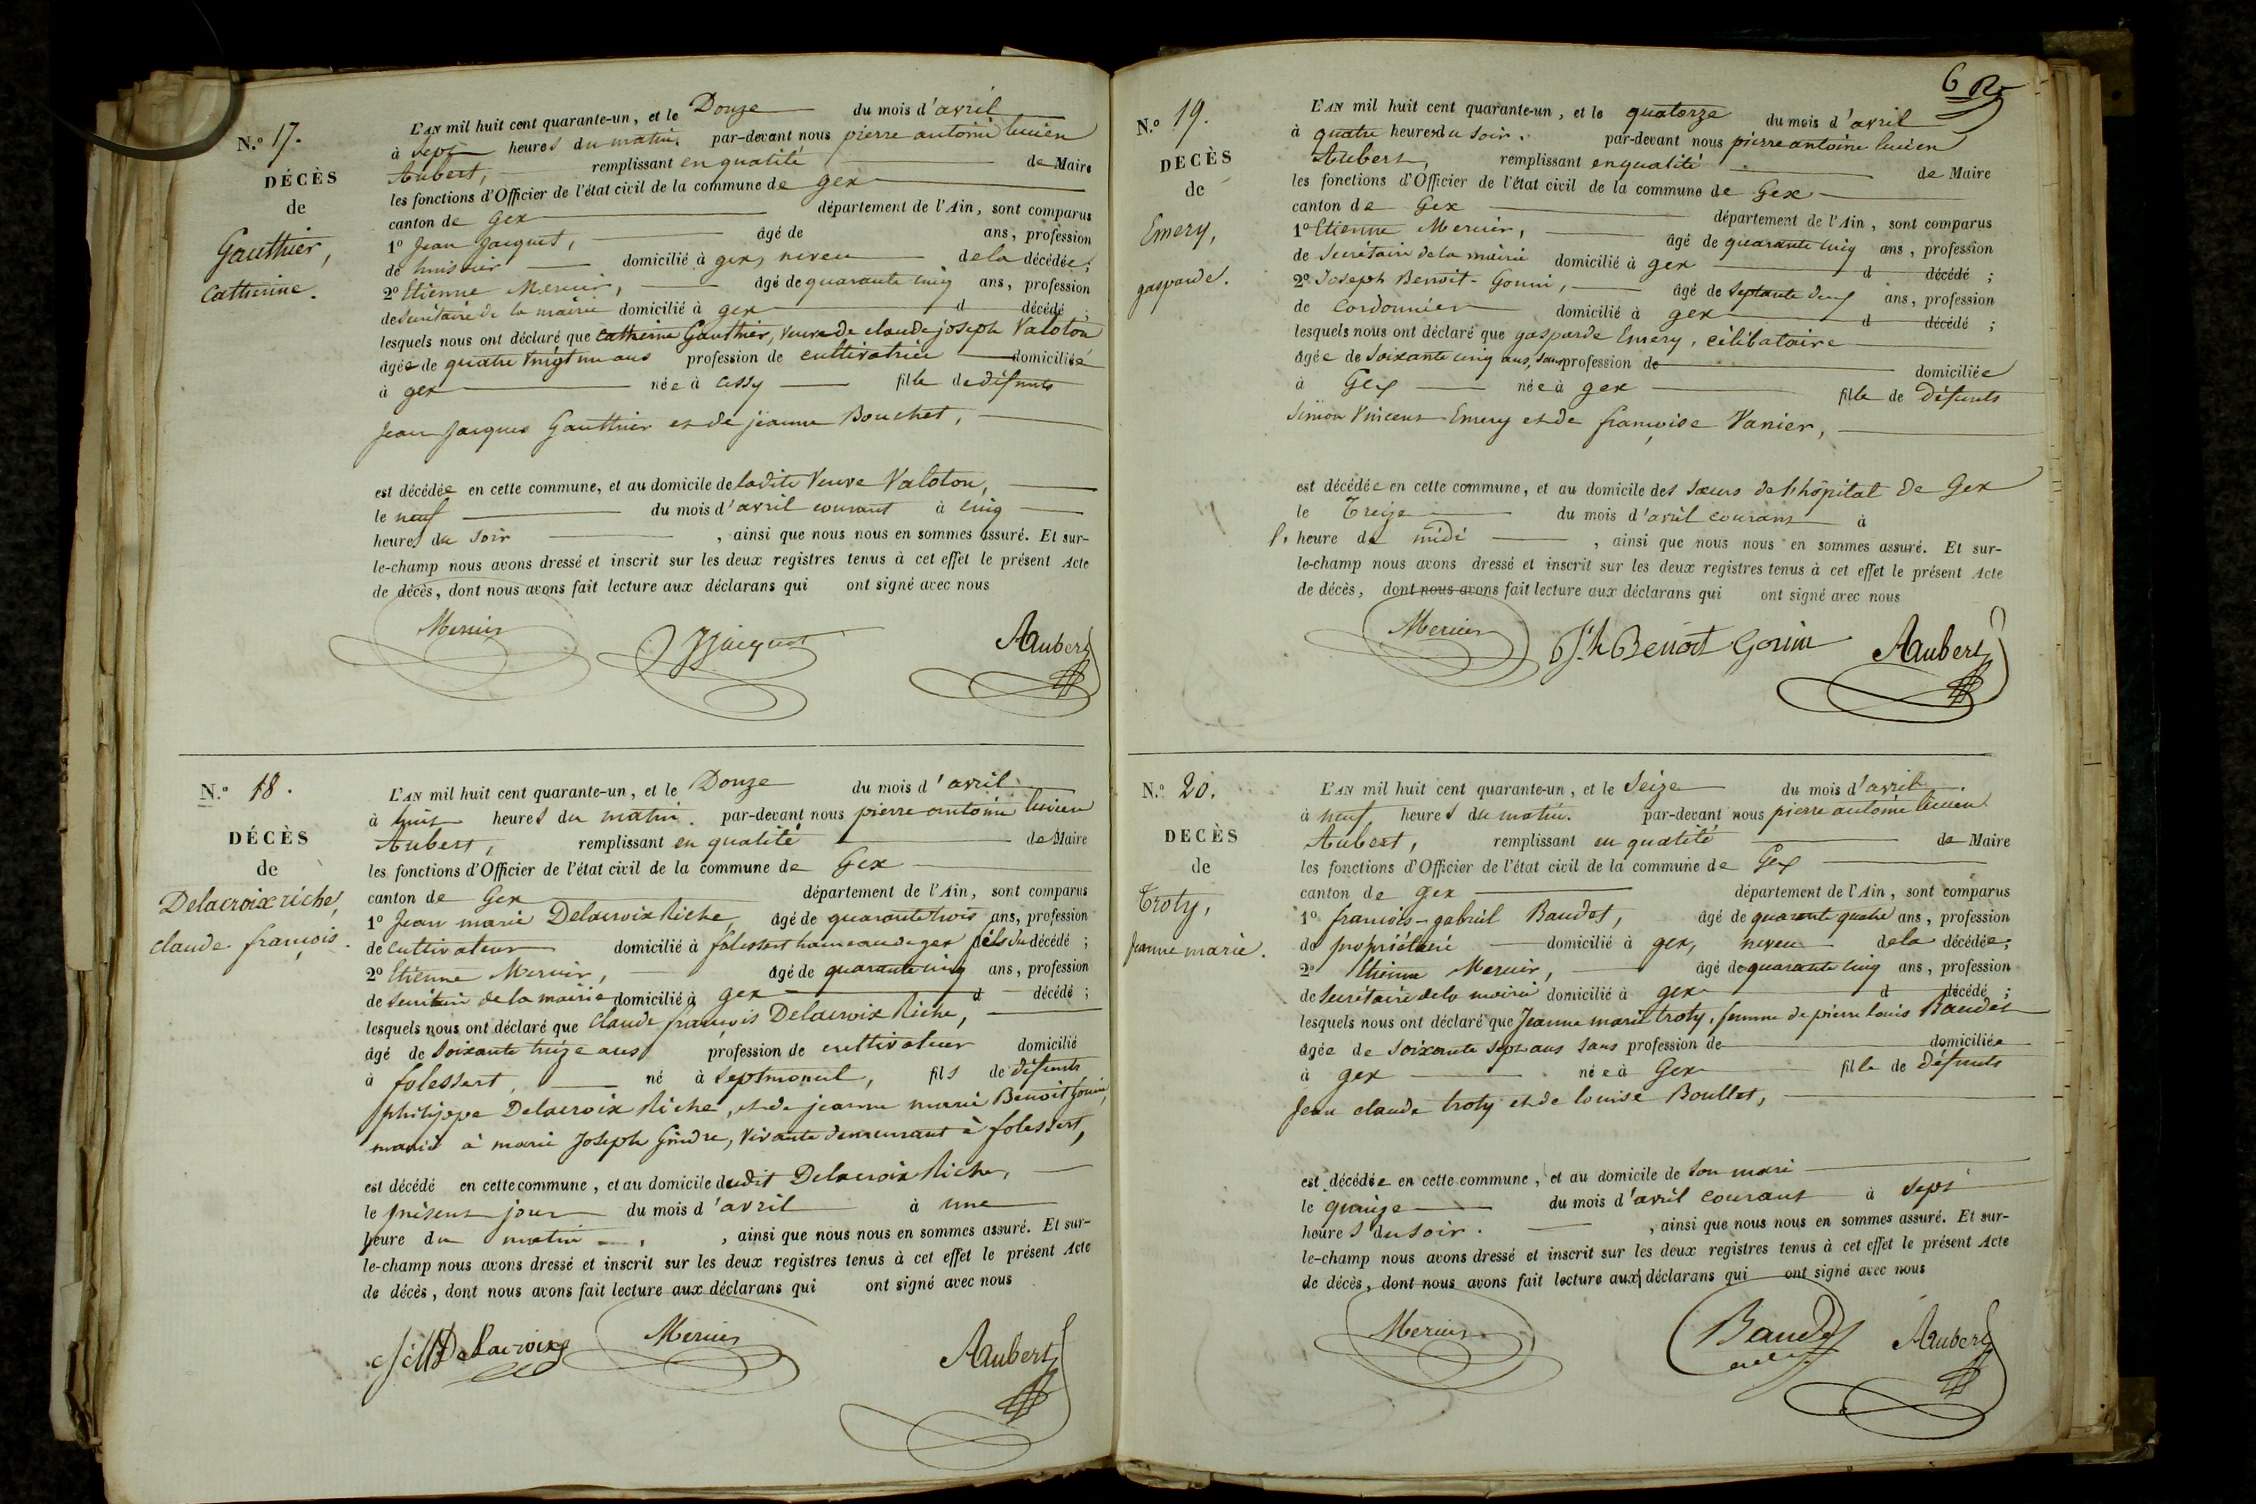 N.º 17.
DÉCÈS
de
Gauthier,
Catherine.
L'AN mil huit cent quarante-un, et le Douze du mois d'avril
à sept heures du matin. par-devant nous pierre antoine lucien
Aubert, remplissant en qualité de Maire
les fonctions d'Officier de l'état civil de la commune de gex
canton de Gex département de l'Ain, sont comparus
1º Jean Jacquet, âgé de ans, profession
de huissier domicilié à gex, neveu de la décédée;
2º Etienne Mercier, âgé de quarante cinq ans, profession
de secrétaire de la mairie domicilié à gex d décédé ;
lesquels nous ont déclaré que catherine Gauthier, veuve de claude joseph Valoton
âgée de quatre vingt un ans profession de cultivatrice domiciliée
à gex née à cessy fille de défunts
Jean Jacques Gauthier et de jeanne Bouchet,
est décédée en cette commune, et au domicile de ladite Veuve Valoton,
le neuf du mois d'avril courant à cinq
heures du soir , ainsi que nous nous en sommes assuré. Et sur-
le-champ nous avons dressé et inscrit sur les deux registres tenus à cet effet le présent Acte
de décès, dont nous avons fait lecture aux déclarans qui ont signé avec nous
Mercier JJacquet Aubert
N.º 18.
DÉCÈS
de
Delacroix riche,
claude françois.
L'AN mil huit cent quarante-un, et le Douze du mois d'avril
à huit heures du matin. par-devant nous pierre antoine lucien
Aubert, remplissant en qualité de Maire
les fonctions d'Officier de l'état civil de la commune de Gex
canton de Gex département de l'Ain, sont comparus
1º Jean marie Delacroix Riche âgé de quarante trois ans, profession
de cultivateur domicilié à folessert hameau de gex fils du décédé ;
2º Etienne Mercier, âgé de quarante cinq ans, profession
de secrétaire de la mairie domicilié à gex d décédé ;
lesquels nous ont déclaré que Claude françois Delacroix Riche,
âgé de soixante treize ans profession de cultivateur domicilié
à folessert, né à septmoncel, fils de défunts
philippe Delacroix Riche, et de jeanne marie Benoit Gonin,
marié à marie Joseph Gindre, vivante demeurant à folessert,
est décédé en cette commune, et au domicile dudit Delacroix Riche,
le présent jour du mois d'avril à une
heure du matin , ainsi que nous nous en sommes assuré. Et sur-
le-champ nous avons dressé et inscrit sur les deux registres tenus à cet effet le présent Acte
de décès, dont nous avons fait lecture aux déclarans qui ont signé avec nous
Delacroix Mercier Aubert
N.º 19.
DECÈS
de
Emery,
gasparde.
L'AN mil huit cent quarante-un, et le quatorze du mois d'avril
à quatre heures du soir. par-devant nous pierre antoine lucien
Aubert, remplissant en qualité de Maire
les fonctions d'Officier de l'état civil de la commune de Gex
canton de Gex département de l'Ain, sont comparus
1º Etienne Mercier, âgé de quarante cinq ans, profession
de secrétaire de la mairie domicilié à gex d décédé ;
2º Joseph Benoit-Gonin, âgé de septante deux ans, profession
de cordonnier domicilié à gex d décédé ;
lesquels nous ont déclaré que gasparde Emery, célibataire
âgée de soixante cinq ans, sans profession de domiciliée
à Gex née à gex fille de défunts
Simon Vincent Emery et de françoise Vanier,
est décédée en cette commune, et au domicile des sœurs de l'hôpital de Gex
le Treize du mois d'avril courant à
l' heure de midi , ainsi que nous nous en sommes assuré. Et sur-
le-champ nous avons dressé et inscrit sur les deux registres tenus à cet effet le présent Acte
de décès, dont nous avons fait lecture aux déclarans qui ont signé avec nous
Mercier Jh Benoit Gonin Aubert
N.º 20.
DECÈS
de
Troty,
Jeanne marie.
L'AN mil huit cent quarante-un, et le Seize du mois d'avril
à neuf heures du matin. par-devant nous pierre antoine lucien
Aubert, remplissant en qualité de Maire
les fonctions d'Officier de l'état civil de la commune de Gex
canton de gex département de l'Ain, sont comparus
1º françois-gabriel Baudet, âgé de quarante quatre ans, profession
de propriétaire domicilié à gex, neveu de la décédée;
2º Etienne Mercier, âgé de quarante cinq ans, profession
de secrétaire de la mairie domicilié à gex d décédé ;
lesquels nous ont déclaré que Jeanne marie troty, femme de pierre louis Baudet
âgée de soixante sept ans sans profession de domiciliée
à gex née à Gex fille de défunts
Jean claude troty et de louise Boullet,
est décédée en cette commune, et au domicile de son mari
le quinze du mois d'avril courant à sept
heures du soir. , ainsi que nous nous en sommes assuré. Et sur-
le-champ nous avons dressé et inscrit sur les deux registres tenus à cet effet le présent Acte
de décès, dont nous avons fait lecture aux déclarans qui ont signé avec nous
Mercier Baudet Aubert